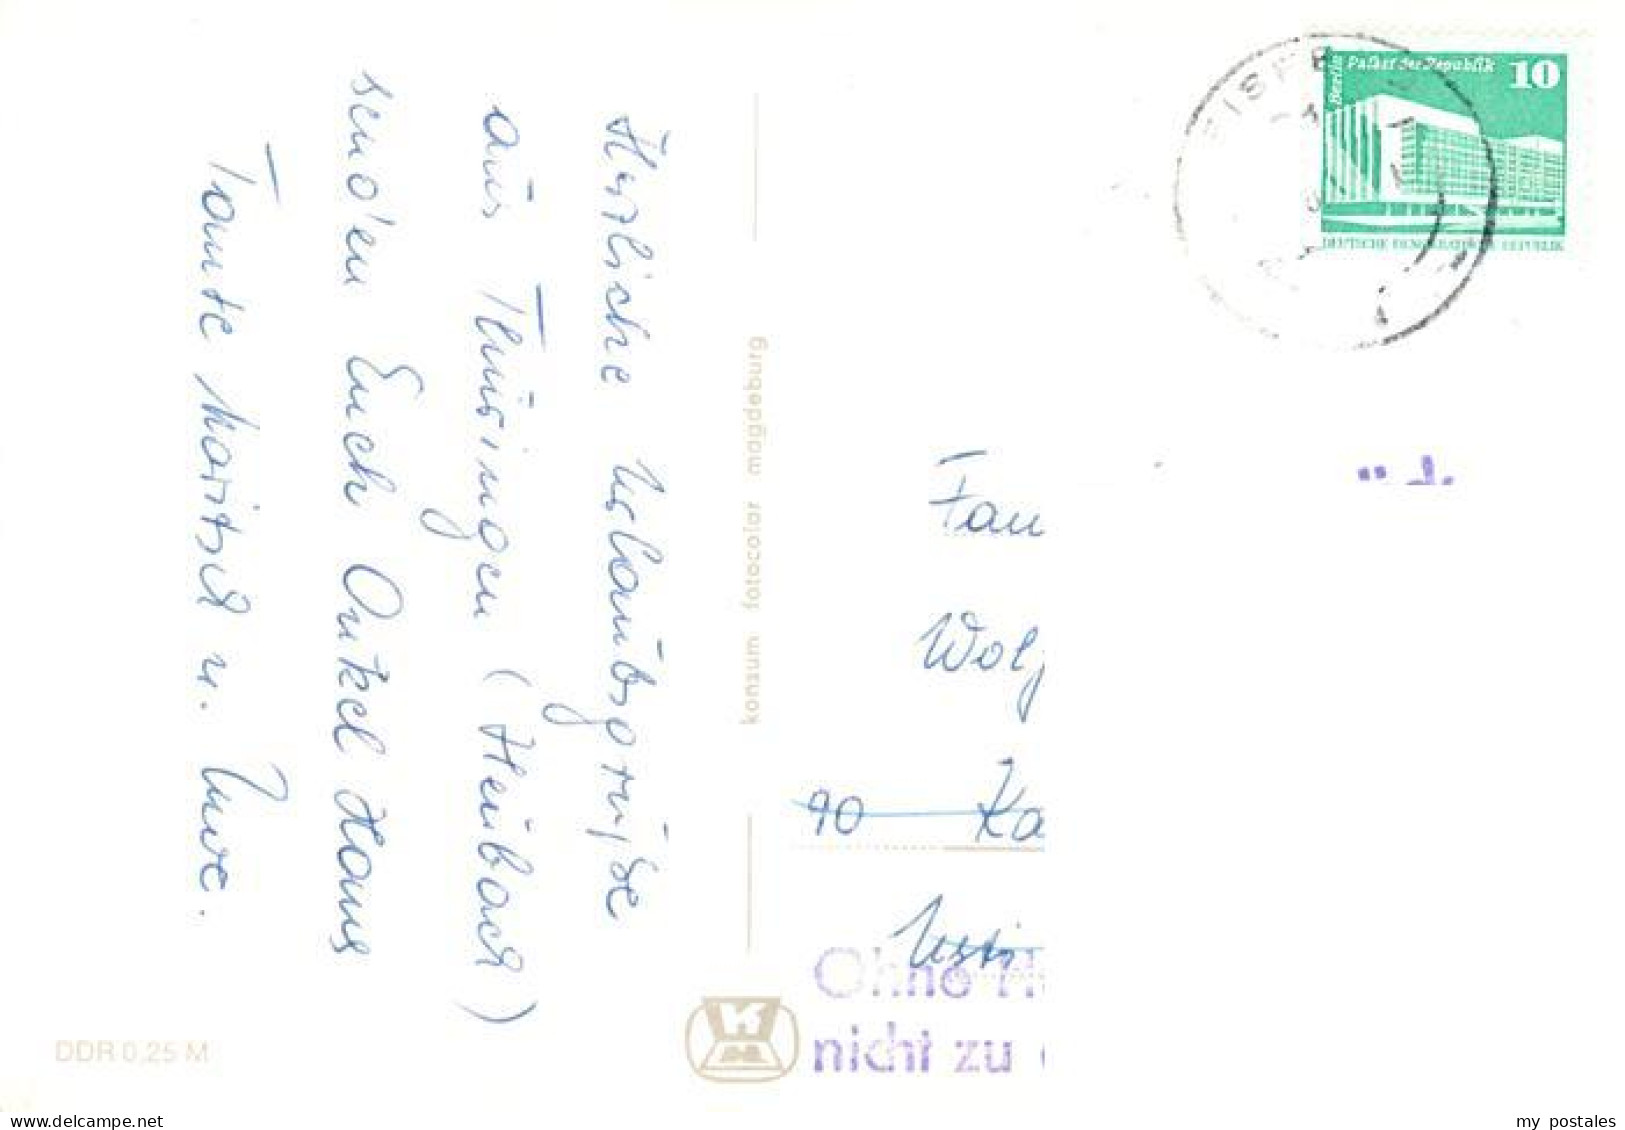 Herzliche Urlaubsgrüße
aus Thüringen (Heubach)
senden Euch Onkel Hans
Tante Moritzel u. Uwe.
konsum fotocolor magdeburg
DDR 0,25 M
Berlin Palast der Republik 10
DEUTSCHE DEMOKRATISCHE REPUBLIK
EISFE
Fam
Wolf
90 Ka
Ohne H
nicht zu
delcampe.net
my_postales